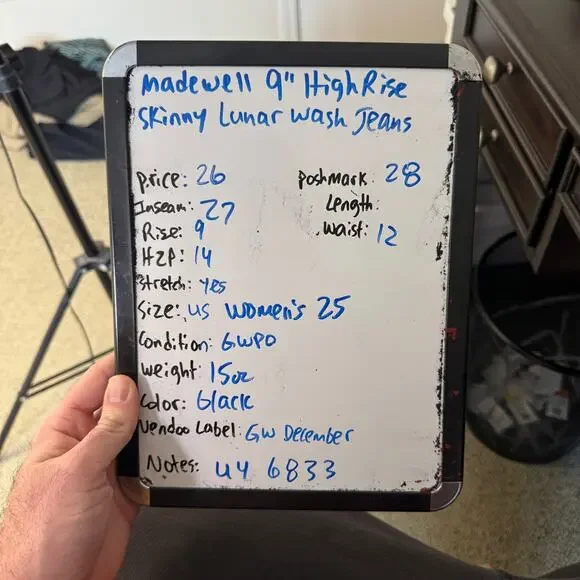 madewell 9" High Rise
Skinny Lunar Wash Jeans
Price: 26
Poshmark: 28
Inseam: 27
Length:
Rise: 9
Waist: 12
H2P: 14
Stretch: yes
Size: US Women's 25
Condition: GWPO
Weight: 15oz
Color: black
Vendoo Label: GW December
Notes: U4 6833